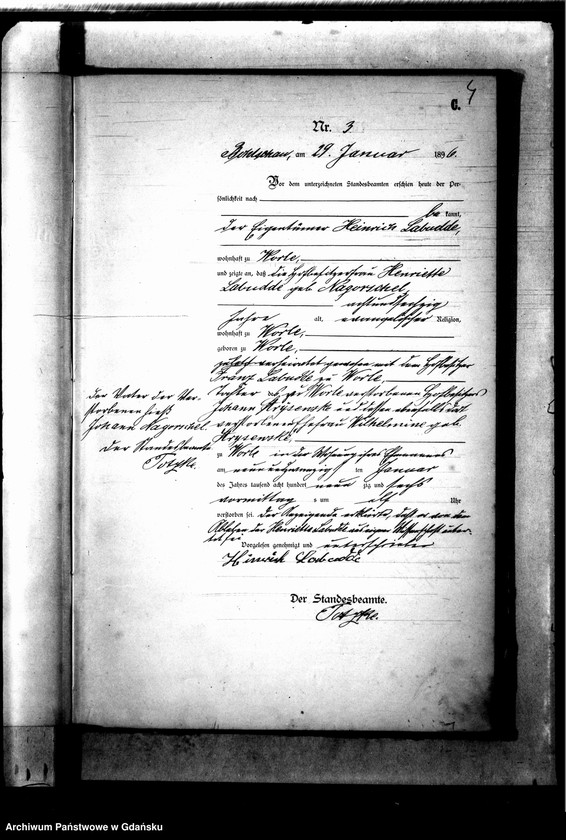 C.
4
Nr. 3
Bohlschau, am 29. Januar 1896.
Vor dem unterzeichneten Standesbeamten erschien heute der Per-
sönlichkeit nach
be kannt,
der Eigentümer Heinrich Labudde,
wohnhaft zu Worle,
und zeigte an, daß die Hofbesitzerfrau Henriette
Labudde geb. Nagorschel,
achtundsechzig
Jahre alt, evangelischer Religion,
wohnhaft zu Worle,
geboren zu Worle,
verheirathet gewesen mit dem Hofbesitzer
Franz Labudde zu Worle,
Tochter des zu Worle verstorbenen Hofbesitzers
Johann und dessen ebenfalls
verstorbenen Ehefrau Wilhelmine geb.
zu Worle in der Wohnung ihres Ehemannes
am neunundzwanzigsten Januar
des Jahres tausend acht hundert neun zig und sechs
vormittags um elf Uhr
verstorben sei. Der Anzeigende erklärte, daß er von dem
Ableben der Henriette Labudde aus eigener Wissenschaft unter-
tet sei
Vorgelesen genehmigt und unterschrieben
Heinrich Labudde
Der Standesbeamte.
Totzke.
Der Vater der Ver-
storbenen hieß
Johann Nagorschel.
Der Standesbeamte
Totzke.
Archiwum Państwowe w Gdańsku